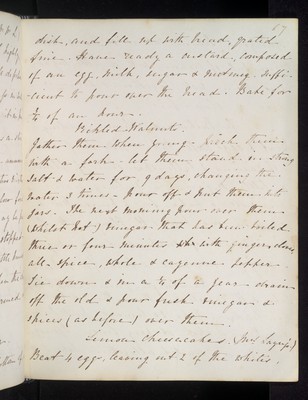 67
dish, and fill up with bread, grated
fine. Have ready a custard, composed
of an egg, milk, sugar & nutmeg, suffi-
cient to pour over the bread. Bake for
½ of an hour.
Pickled Walnuts.
Gather them when young - prick them
with a fork - let them stand in strong
salt & water for 9 days, changing the
water 3 times - Pour off & put them into
jars. The next morning pour over them
(whilst hot) vinegar that has been boiled
three or four minutes with ginger, cloves,
all-spice, whole & cayenne pepper.
Tie down & in a ¼ of a year - drain
off the old & pour fresh vinegar &
spices (as before) over them.
Lemon Cheesecakes. (Mrs)
Beat 4 eggs, leaving out 2 of the whites.